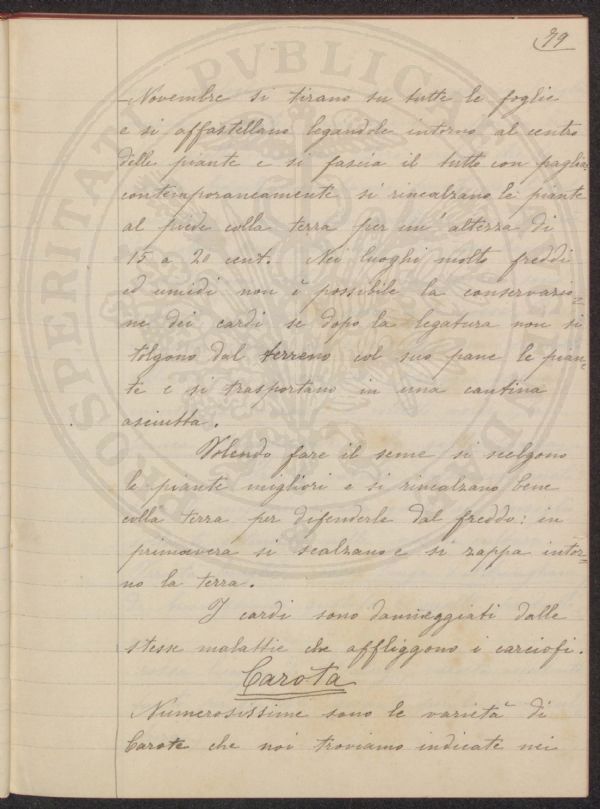 79
Novembre si tirano su tutte le foglie
e si affastellano legandole intorno al centro
delle piante e si fascia il tutto con paglia,
contemporaneamente si rincalzano le piante
al piede colla terra per un' altezza di
15 a 20 cent. Nei luoghi molto freddi
ed umidi non è possibile la conservazio=
ne dei cardi se dopo la legatura non si
tolgono dal terreno col suo pane le pian=
te e si trasportano in una cantina
asciutta.
Volendo fare il seme si scelgono
le piante migliori e si rincalzano bene
colla terra per difenderle dal freddo: in
primavera si scalzano e si zappa intor=
no la terra.
I cardi sono danneggiati dalle
stesse malattie che affliggono i carciofi.
Carota
Numerosissime sono le varietà di
Carote che noi troviamo indicate nei